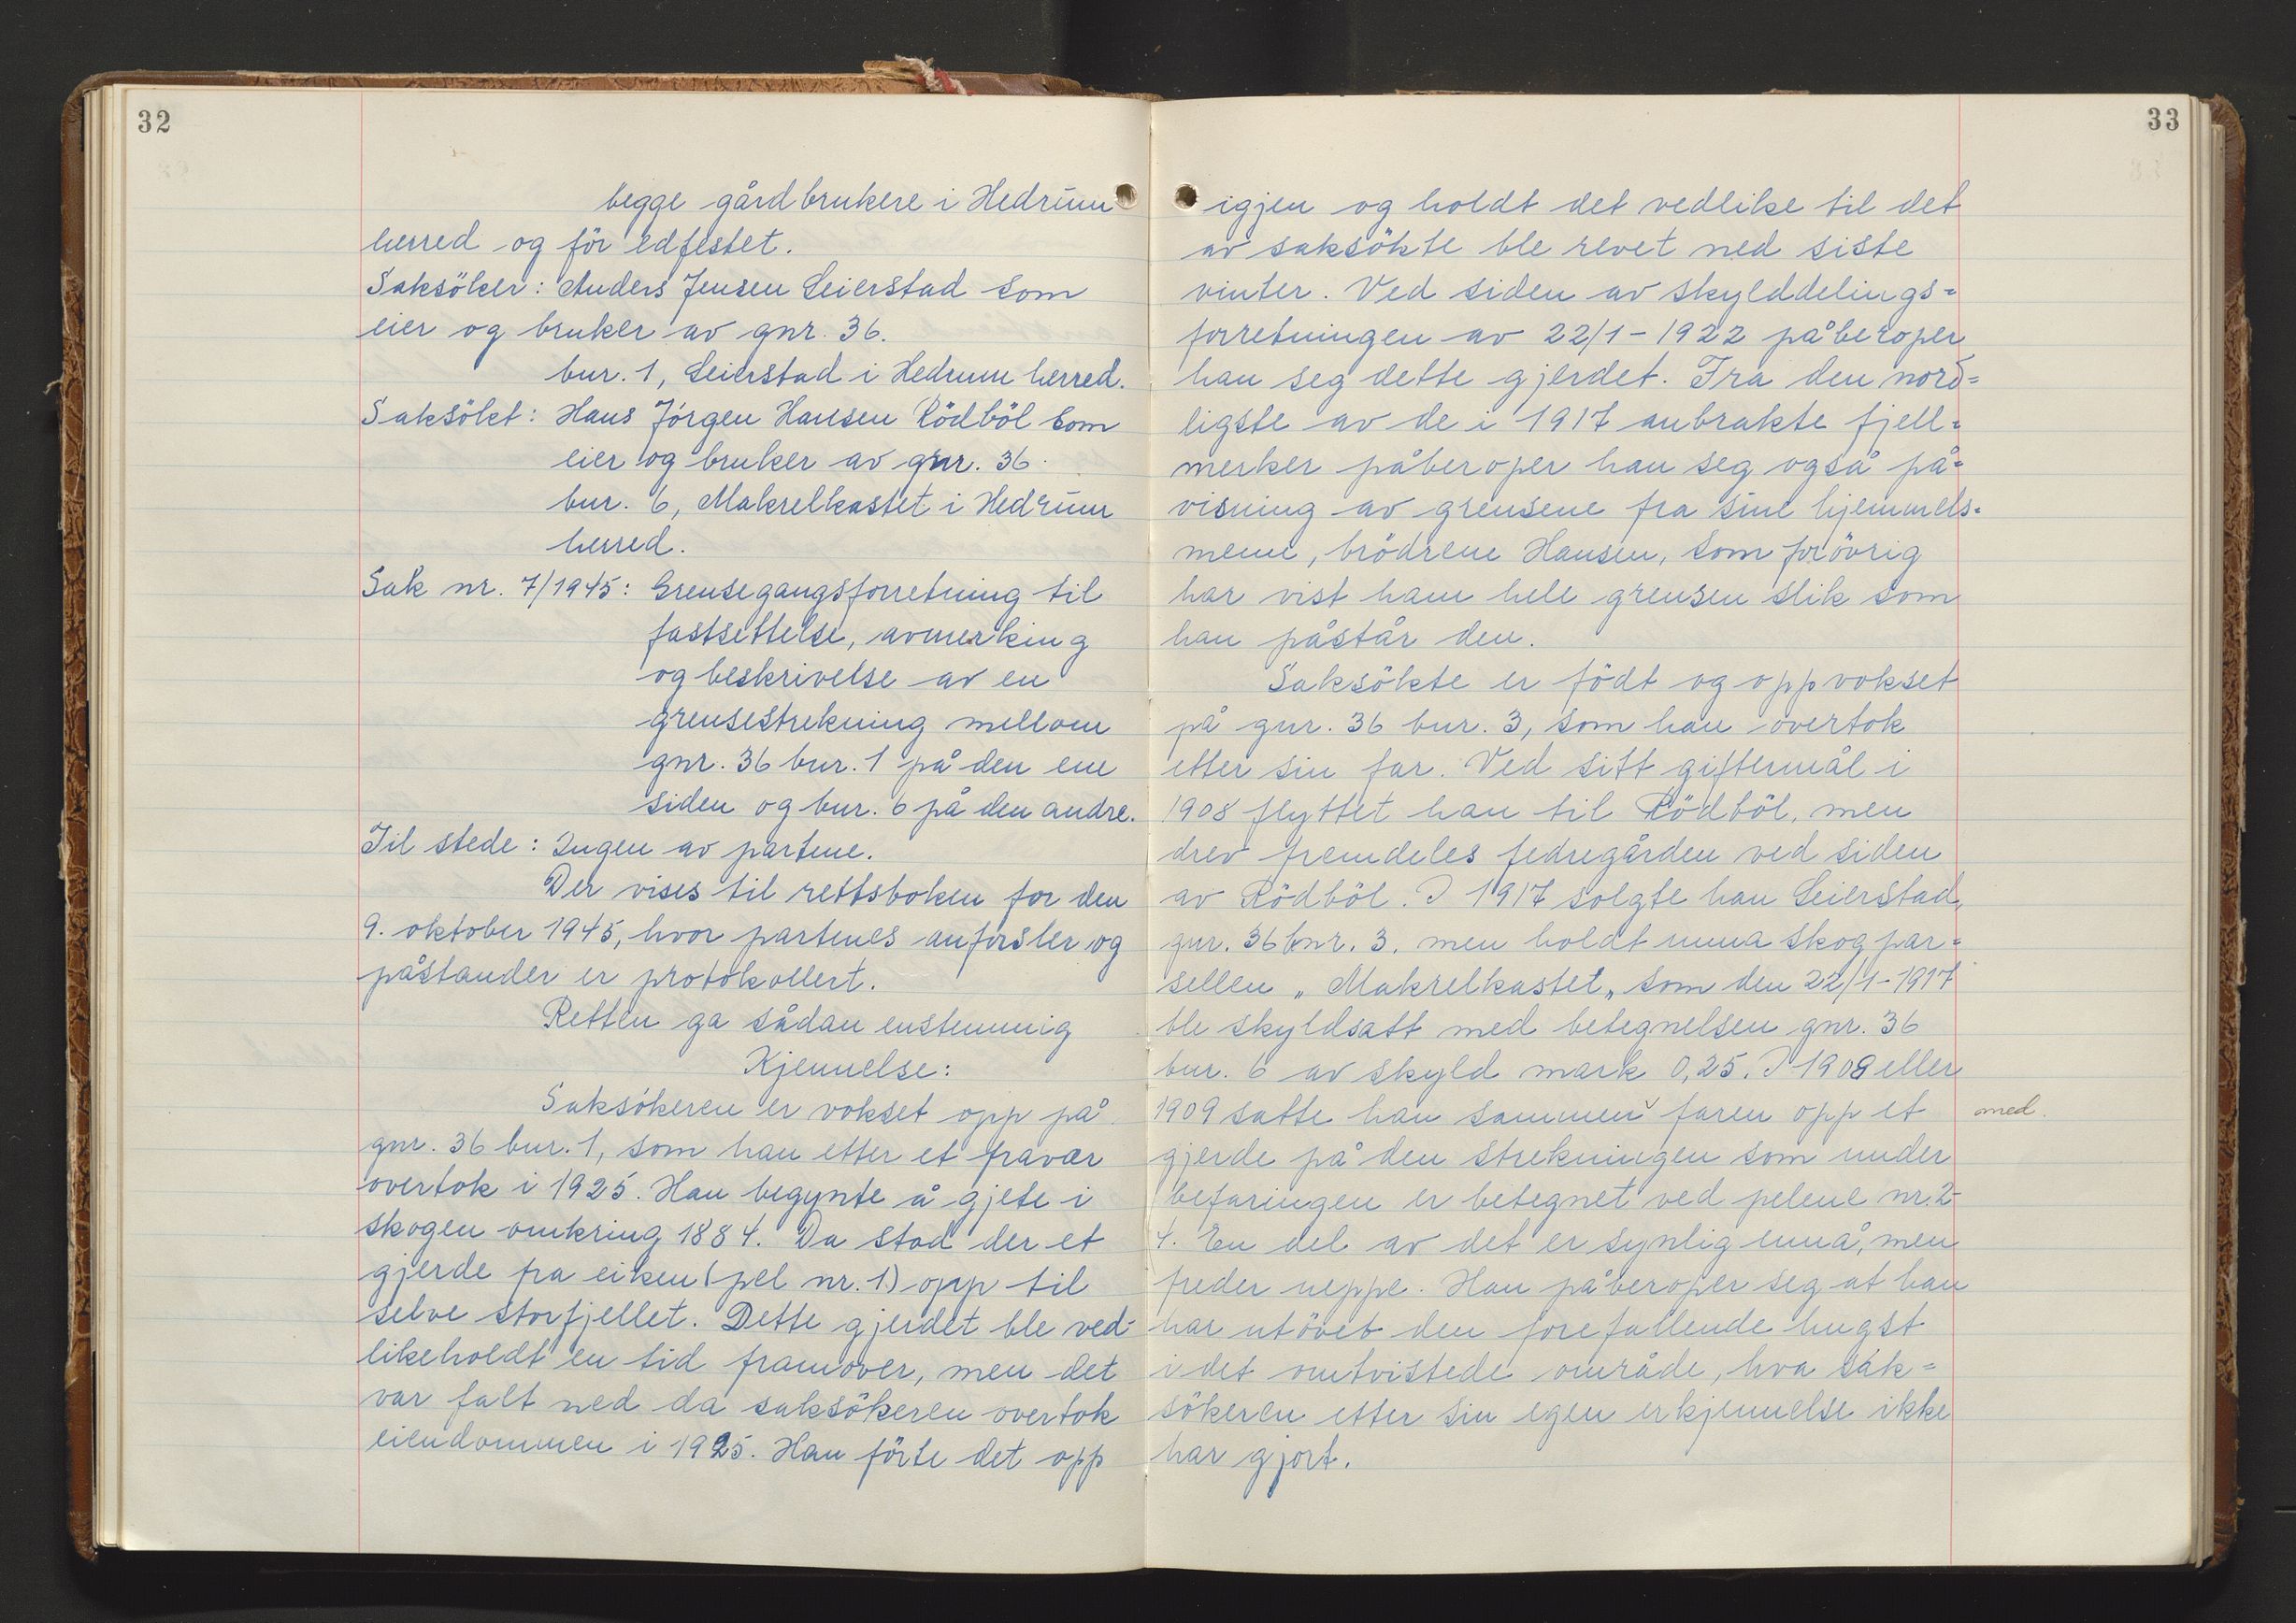 32
begge gårdbrukere i Hedrum
herred og för edfestet.
Saksöker: Anders Jensen Leierstad som
eier og bruker av gnr. 36.
bnr. 1, Leierstad i Hedrum herred.
Saksökt: Hans Jörgen Hansen Rödböl som
eier og bruker av gnr. 36.
bnr. 6, Makrelkastet i Hedrum
herred.
Sak nr. 7/1945: Grensegangsforretning til
fastsettelse, avmerking
og beskrivelse av en
grensestrekning mellom
gnr. 36 bnr. 1 på den ene
siden og bnr. 6 på den andre.
Til stede: Ingen av partene.
Der vises til rettsboken for den
9. oktober 1945, hvor partenes anförsler og
påstander er protokollert.
Retten ga sådan enstemmig
Kjennelse:
Saksökeren er vokset opp på
gnr. 36 bnr. 1, som han etter et fravær
overtok i 1925. Han begynte å gjete i
skogen omkring 1884. Da stod der et
gjerde fra eiken (pel nr. 1) opp til
selve storfjellet. Dette gjerdet ble ved-
likeholdt en tid framover, men det
var falt ned da saksökeren overtok
eiendommen i 1925. Han förte det opp
33
igjen og holdt det vedlike til det
av saksökte ble revet ned siste
vinter. Ved siden av skylddelings=
forretningen av 22/1-1922 påberoper
han seg dette gjerdet. Fra den nord=
ligste av de i 1917 anbrakte fjell=
merker påberoper han seg også på=
visning av grensene fra sine hjemmels=
menn, brödrene Hansen, som forövrig
har vist ham hele grensen slik som
han påstår den.
Saksökte er födt og oppvokset
på gnr. 36 bnr. 3, som han overtok
etter sin far. Ved sitt giftermål i
1908 flyttet han til Rödböl, men
drev fremdeles fedregården ved siden
av Rödböl. I 1917 solgte han Leierstad,
gnr. 36 bnr. 3, men holdt unna skogpar=
sellen „Makrelkastet„ som den 22/1-1917
ble skyldsatt med betegnelsen gnr. 36
bnr. 6 av skyld mark 0,25. I 1908 eller
1909 satte han sammen ᵛ faren opp et med.
gjerde på den strekningen som under
befaringen er betegnet ved pelene nr. 2-
4. En del av det er synlig ennå, men
freder neppe. Han påberoper seg at han
har utövet den forefallende hugst
i det omtvistede område, hva sak=
sökeren etter sin egen erkjennelse ikke
har gjort.